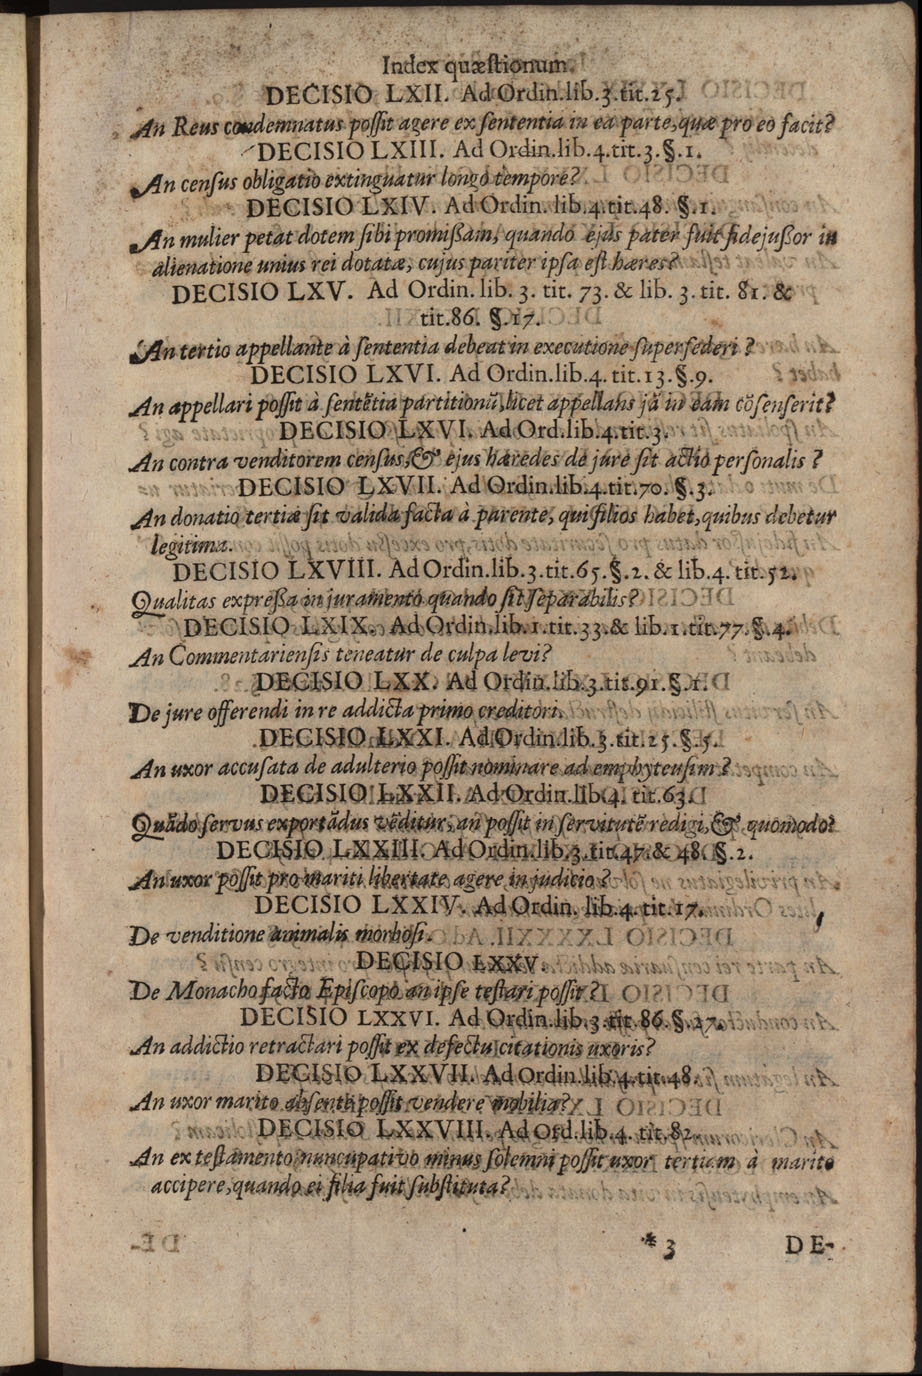 Index quæstionum.
DECISIO LXII. Ad Ordin.lib.3.tit.25.
An Reus condemnatus possit agere ex sententia in ea parte,quæ pro eo facit?
DECISIO LXIII. Ad Ordin.lib.4.tit.3.§.1.
An census obligatio extinguatur longo tempore?
DECISIO LXIV. Ad Ordin. lib.4.tit.48. §.1.
An mulier petat dotem sibi promißam, quando ejus pater fuit fidejußor in
alienatione unius rei dotatæ, cujus pariter ipsa est hæres?
DECISIO LXV. Ad Ordin. lib. 3. tit. 73. & lib. 3. tit. 81. &
tit.86. §.17.
An tertio appellante à sententia debeat in executione supersederi ?
DECISIO LXVI. Ad Ordin.lib.4. tit.13.§.9.
An appellari possit à sentẽtia partitionũ,licet appellans jã in eam cõsenserit?
DECISIO LXVI. Ad Ord.lib.4.tit.3.
An contra venditorem census,& ejus hæredes de jure sit actio personalis ?
DECISIO LXVII. Ad Ordin.lib.4.tit.70. §.3.
An donatio tertiæ sit valida facta à parente, qui filios habet,quibus debetur
legitima.
DECISIO LXVIII. Ad Ordin.lib.3.tit.65.§.2. & lib.4. tit.52.
Qualitas expreßa in juramento quando sit separabilis?
DECISIO LXIX. Ad Ordin.lib.1.tit.33.& lib.1.tit.77.§.4.
An Commentariensis teneatur de culpa levi?
DECISIO LXX. Ad Ordin.lib.3.tit.91.§.1.
De jure offerendi in re addicta primo creditori.
DECISIO LXXI. Ad Ordin.lib.3.tit.25.§.5.
An uxor accusata de adulterio possit nominare ad emphyteusim ?
DECISIO LXXII. Ad Ordin.lib.4. tit.63.
Quãdo servus exportãdus vẽditur, an possit in servitutẽ redigi,& quomodo?
DECISIO LXXIII. Ad Ordin.lib.3.tit.47.& 48.§.2.
An uxor possit pro mariti libertate agere in judicio ?
DECISIO LXXIV. Ad Ordin. lib.4.tit.17.
De venditione animalis morbosi.
DECISIO LXXV.
De Monacho facto Episcopo an ipse testari possit?
DECISIO LXXVI. Ad Ordin.lib.3.tit.86.§.27.
An addictio retractari possit ex defectu citationis uxoris?
DECISIO LXXVII. Ad Ordin.lib.4.tit.48.
An uxor marito absente possit vendere mobilia?
DECISIO LXXVIII. Ad Ord.lib.4. tit.82.
An ex testamento nuncupativo minus solemni possit uxor tertiam à marito
accipere,quando ei filia fuit substituta?
* 3 DE-